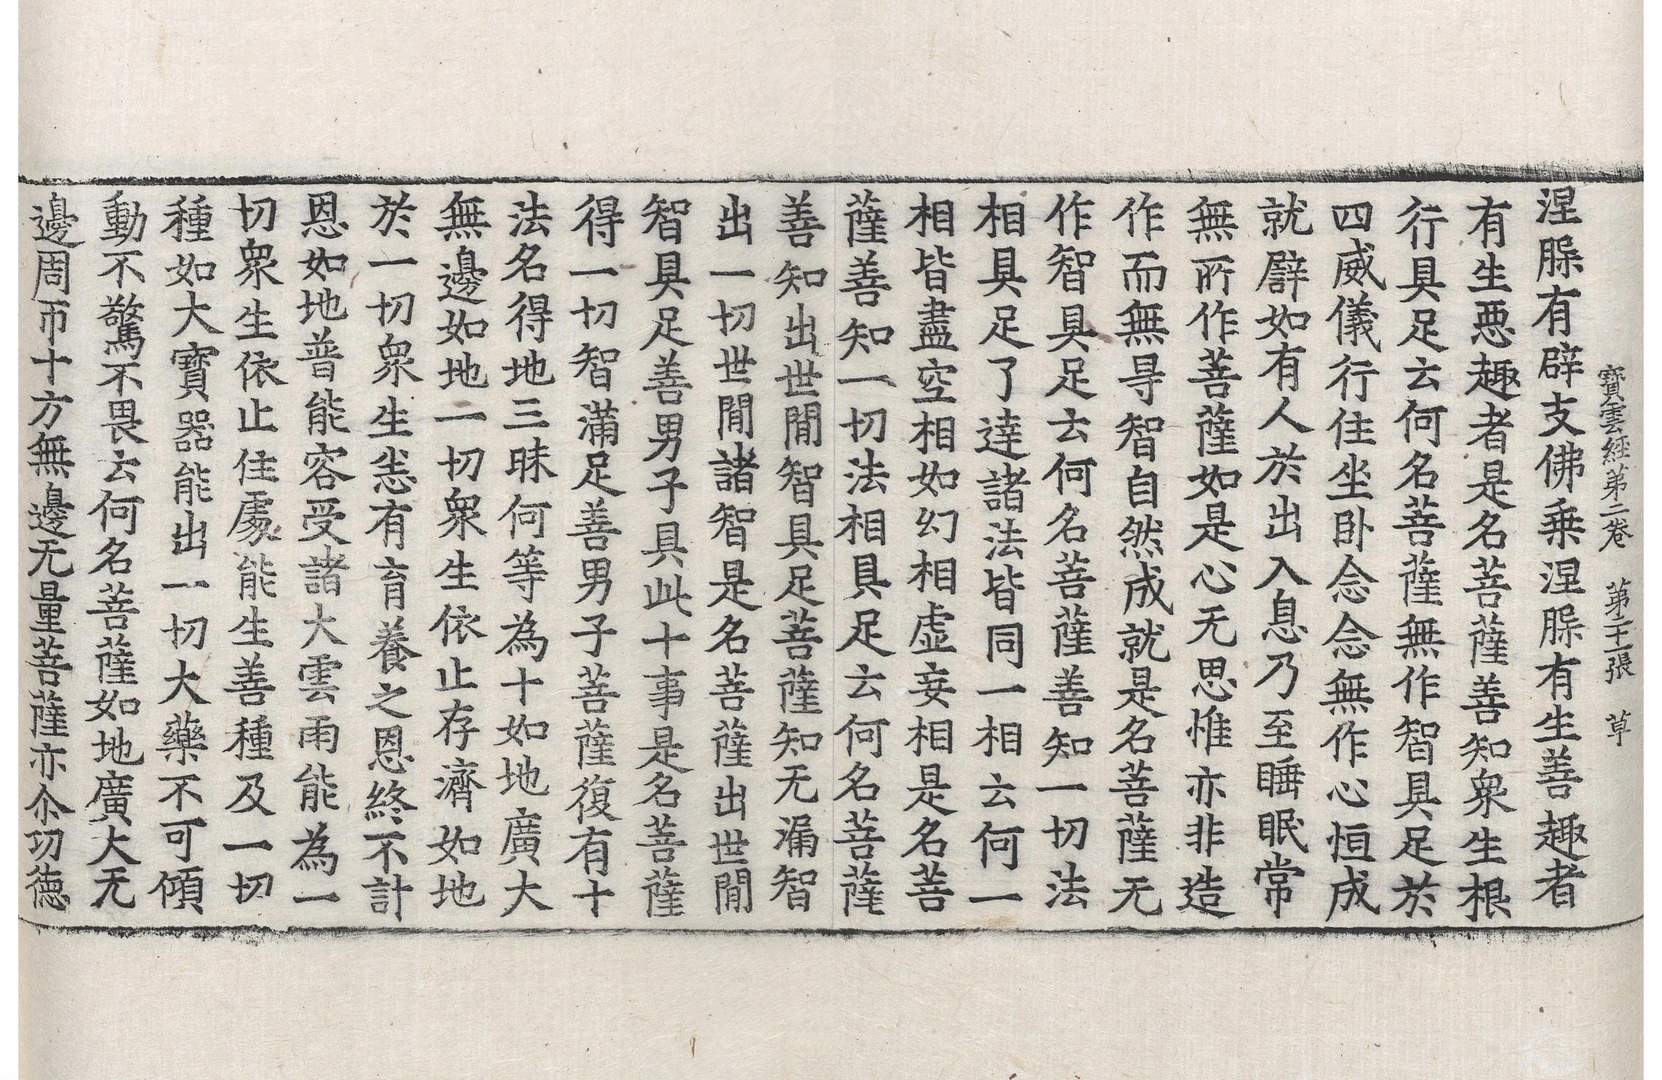 寶雲經第二卷 第二十張 草
涅槃有辟支佛乗涅槃有生善趣者
有生惡趣者是名菩薩善知衆生根
行具足云何名菩薩無作智具足於
四威儀行住坐卧念念無作心恒成
就譬如有人於出入息乃至睡眠常
無所作菩薩如是心无思惟亦非造
作而無㝵智自然成就是名菩薩无
作智具足云何名菩薩善知一切法
相具足了達諸法皆同一相云何一
相皆盡空相如幻相虚妄相是名菩
薩善知一切法相具足云何名菩薩
善知出世閒智具足菩薩知无漏智
出一切世閒諸智是名菩薩出世閒
智具足善男子具此十事是名菩薩
得一切智滿足善男子菩薩復有十
法名得地三昧何等為十如地廣大
無邊如地一切衆生依止存濟如地
於一切衆生恙有育養之恩終不計
恩如地普能容受諸大雲雨能為一
切衆生依止住處能生善種及一切
種如大寶器能出一切大藥不可傾
動不驚不畏云何名菩薩如地廣大无
邊周帀十方無邊无量菩薩亦尒功德